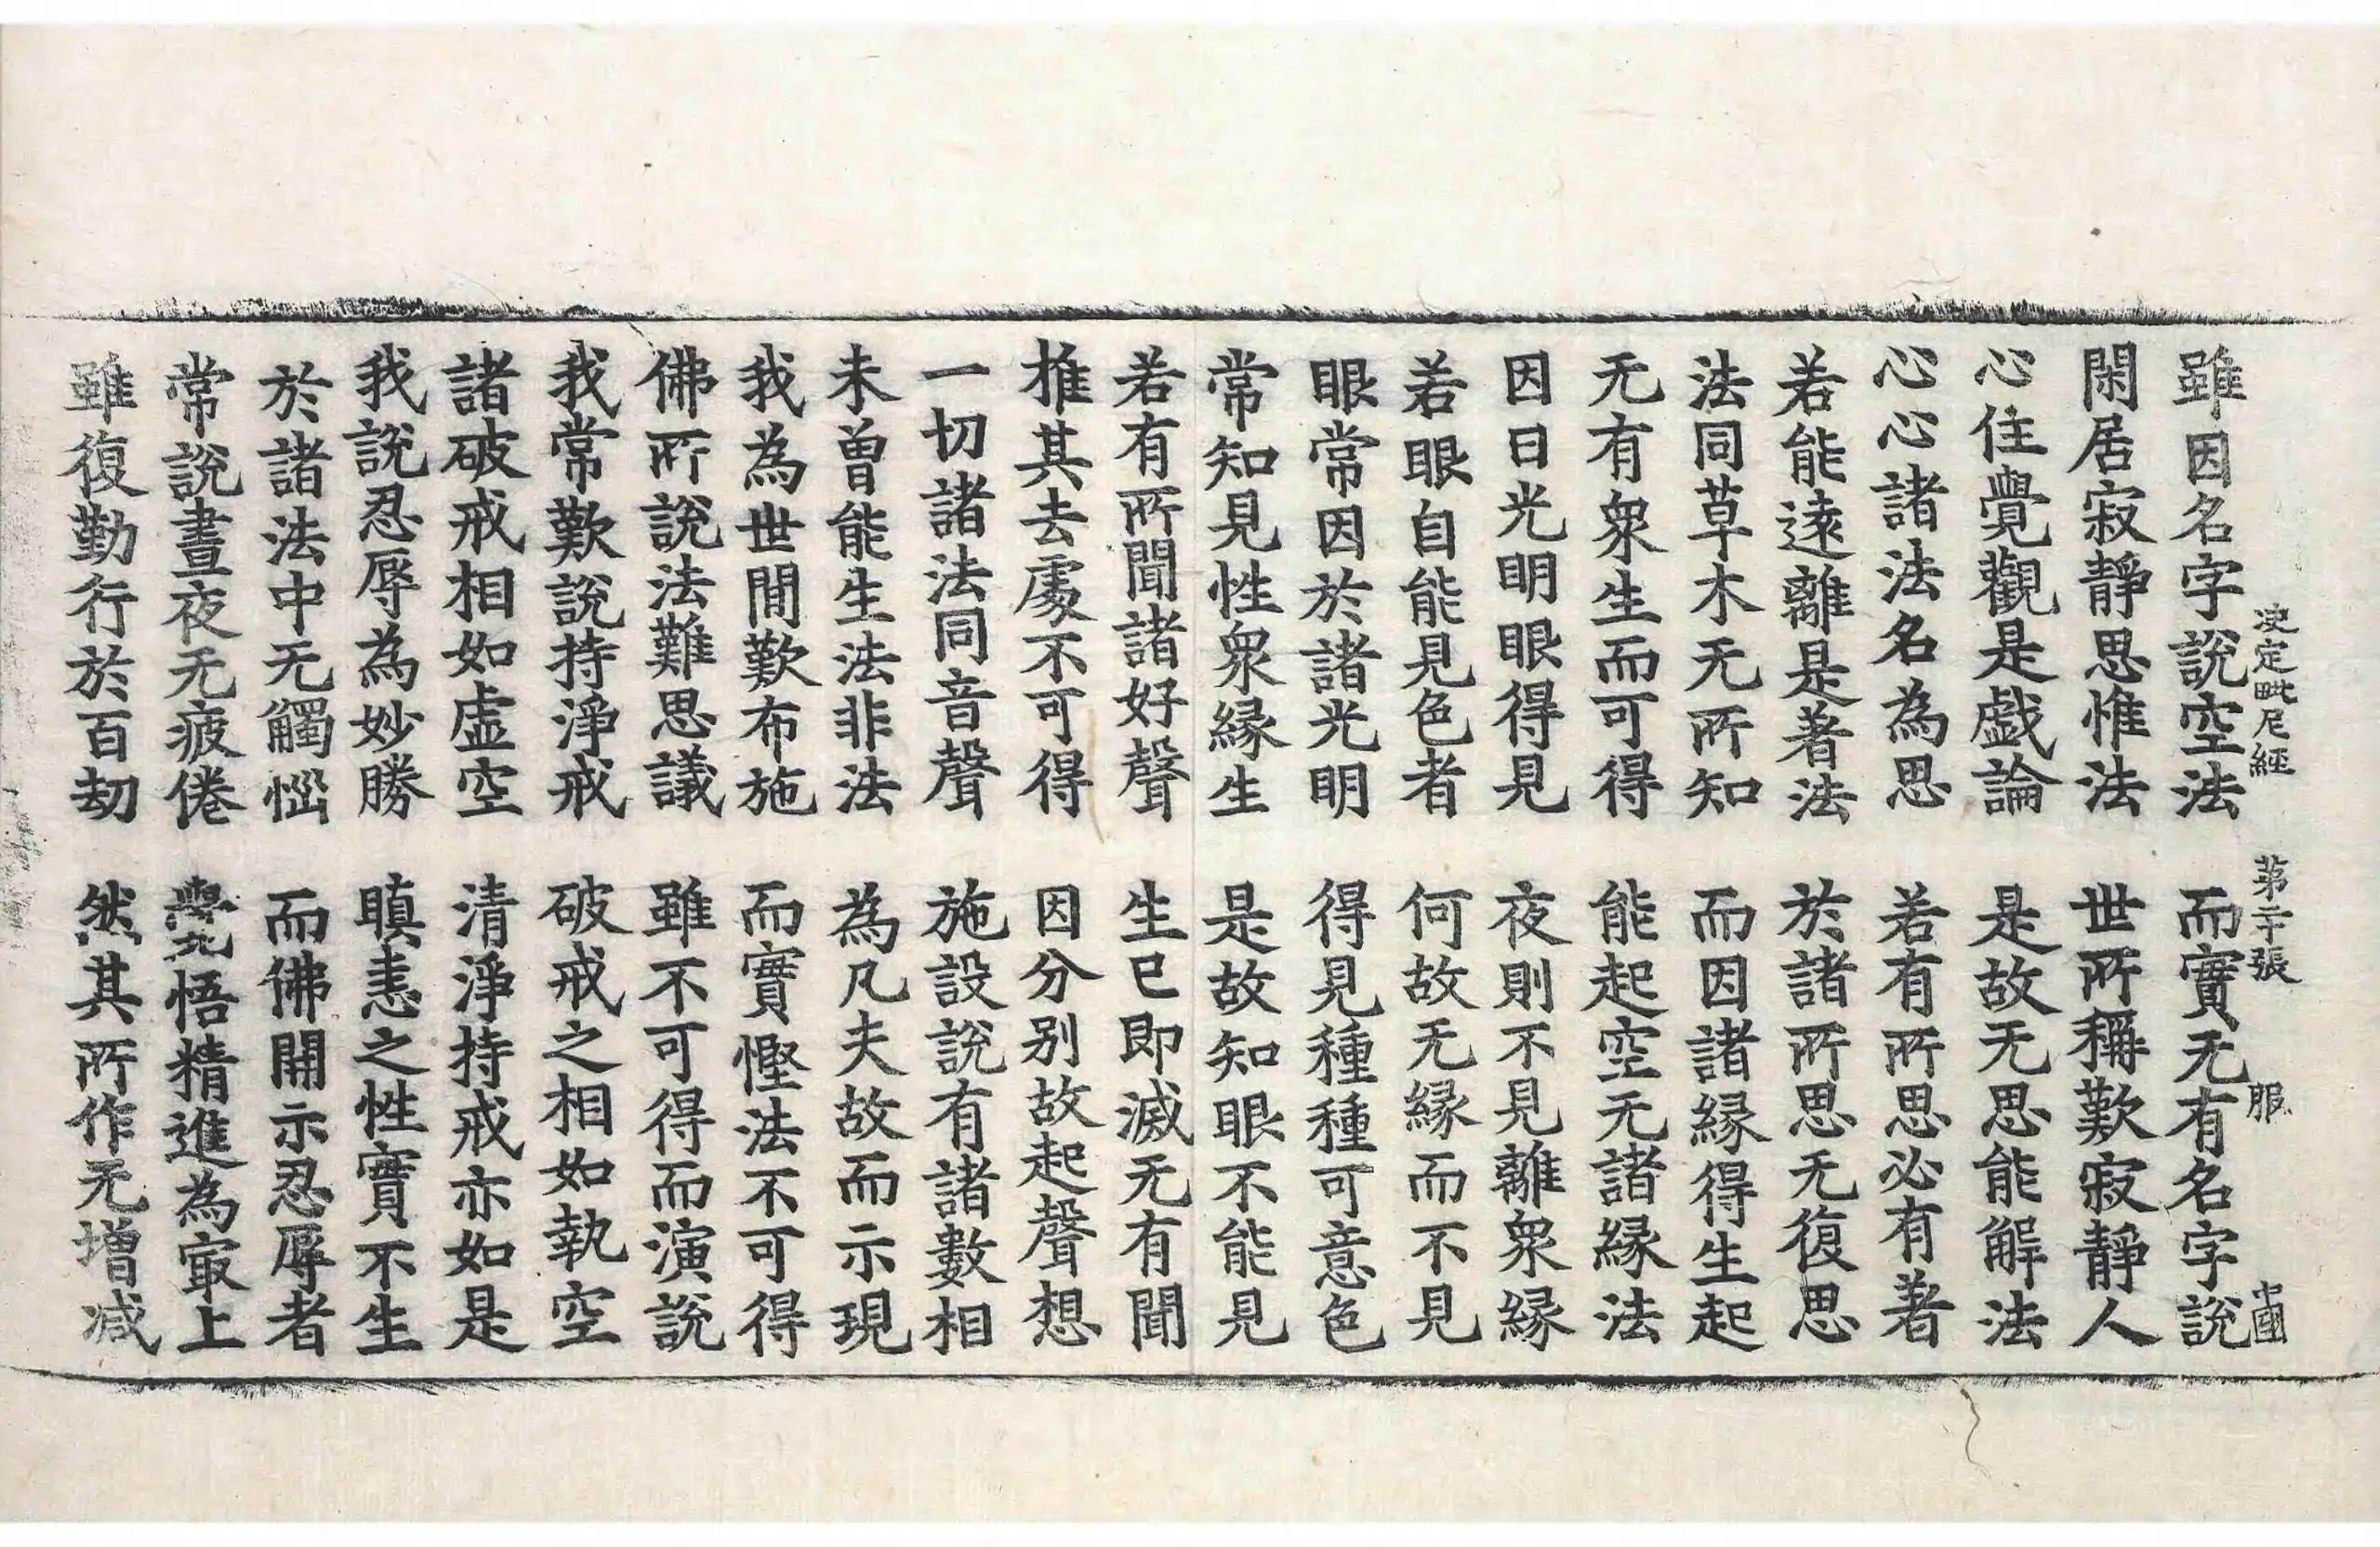 決定毗尼經 第二十張 服
雖因名字說空法 而實无有名字說
閑居寂靜思惟法 世所稱歎寂靜人
心住覺觀是戲論 是故无思能解法
心心諸法名為思 若有所思必有著
若能遠離是著法 於諸所思无復思
法同草木无所知 而因諸緣得生起
无有衆生而可得 能起空无諸緣法
因日光明眼得見 夜則不見離衆緣
若眼自能見色者 何故无緣而不見
眼常因於諸光明 得見種種可意色
常知見性衆緣生 是故知眼不能見
若有所聞諸好聲 生已即滅无有聞
推其去處不可得 因分別故起聲想
一切諸法同音聲 施設說有諸數相
未曾能生法非法 為凡夫故而示現
我為世間歎布施 而實慳法不可得
佛所說法難思議 雖不可得而演說
我常歎說持淨戒 破戒之相如執空
諸破戒相如虛空 清淨持戒亦如是
我說忍辱為妙勝 瞋恚之性實不生
於諸法中无觸惱 而佛開示忍辱者
常說晝夜无疲倦 覺悟精進為寂上
雖復勤行於百劫 然其所作无增減